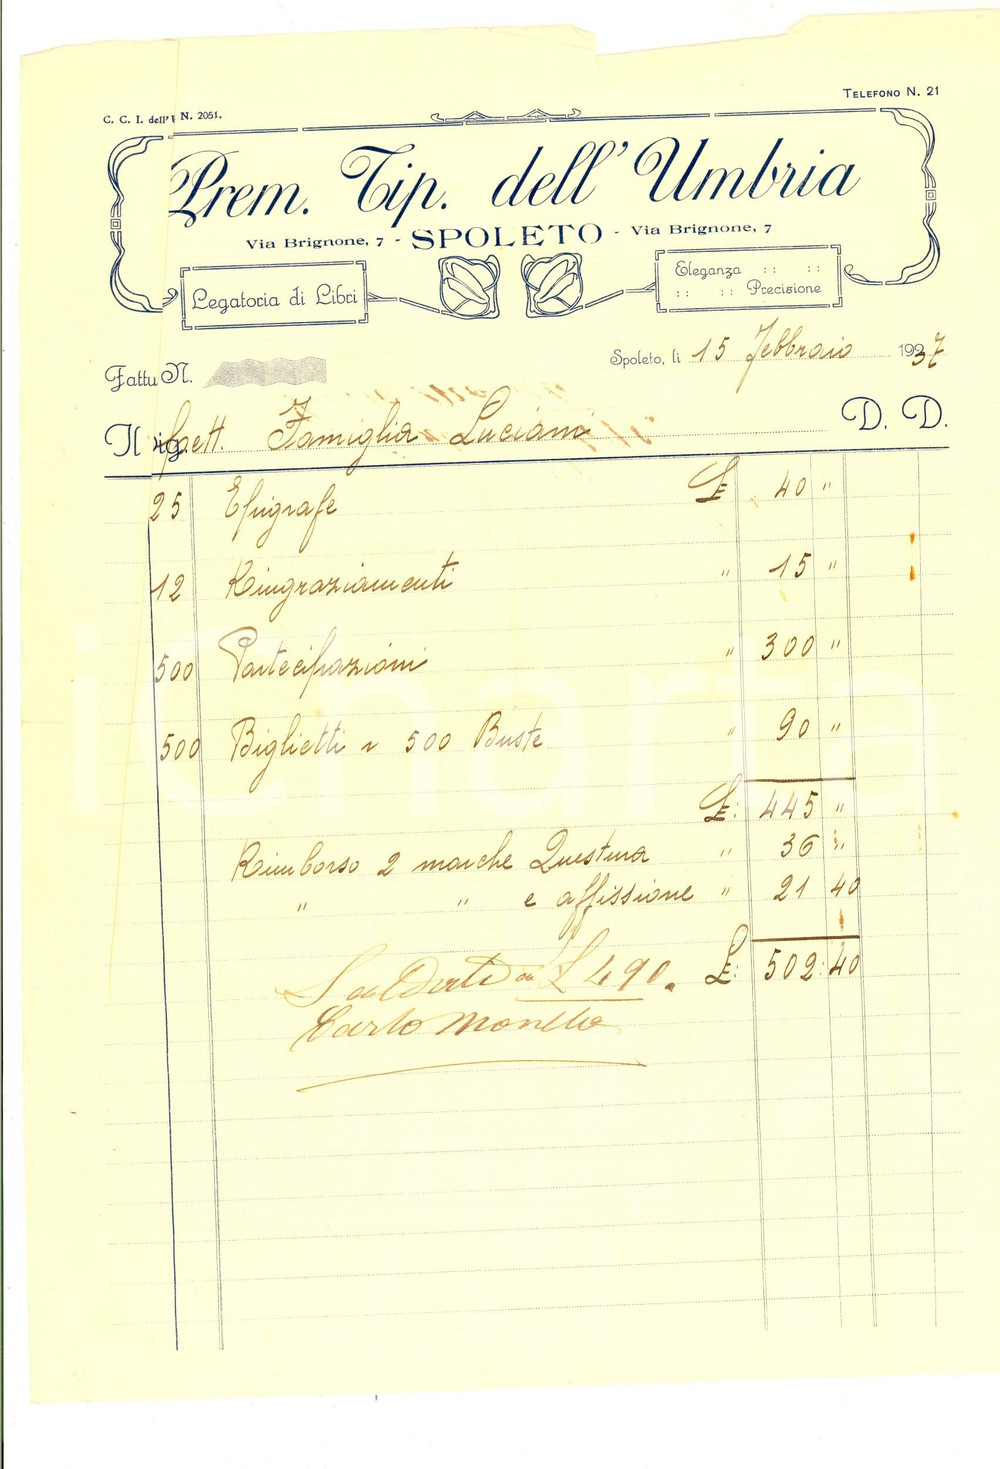 TELEFONO N. 21
C. C. I. dell' N. 2051.
Prem. Tip. dell' Umbria
Via Brignone, 7 - SPOLETO - Via Brignone, 7
Legatoria di Libri
Eleganza :: ::
:: :: Precisione
Spoleto, li 15 Febbraio 1937
Fattu N.
Il Sig. Spett. Famiglia Luciani D. D.
25 Epigrafe £ 40 "
12 Ringraziamenti " 15 "
500 Partecipazioni " 300 "
500 Biglietti e 500 Buste " 90 "
£: 445 "
Rimborso 2 marche Questura " 36 "
" " e affissione " 21 40
£: 502: 40
Saldato a £ 490.
Carlo